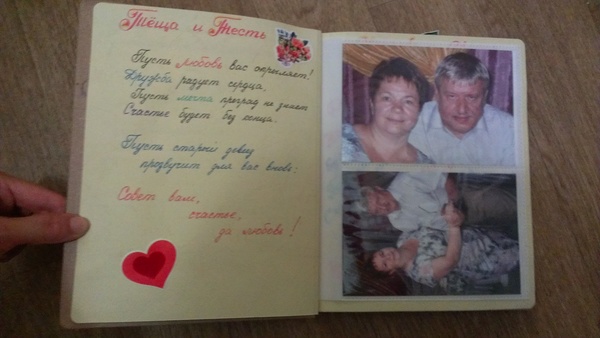 Тёща и Тесть
Пусть любовь вас окрыляет!
Дружба радует сердца.
Пусть мечта преград не знает
Счастье будет без конца.
Пусть старый девиз
прозвучит для вас вновь:
Совет вам,
счастье,
да любовь!